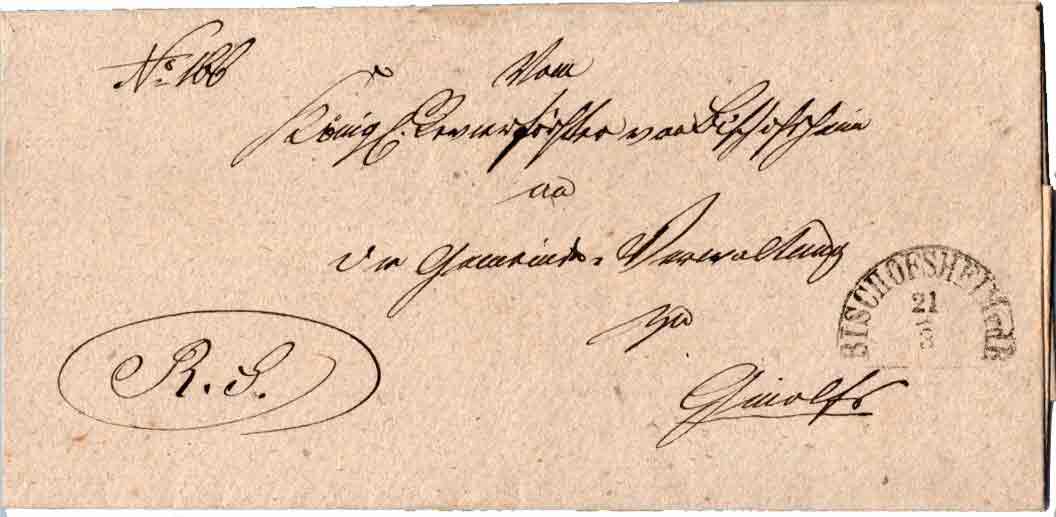 No. 166
Vom
Königl. Revierförster von Bischofsheim
an
die Gemeinde-Verwaltung
zu
Ginolfs
R. S.
BISCHOFSHEIM v.d.R.
21